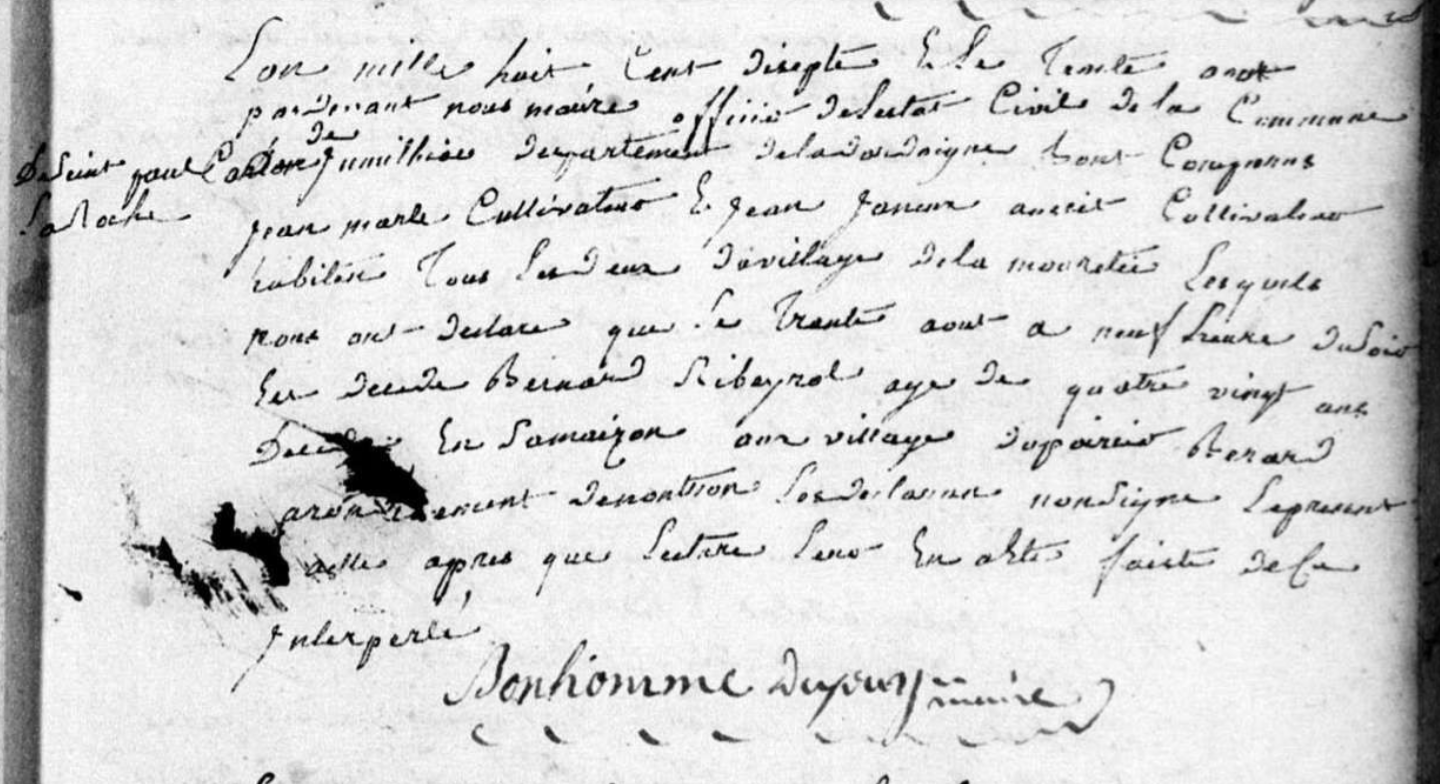 Lan mille huit Cent diseptE Et Le Trente aout
pardevant nous maire officie deleetat Civil de la Commune
de
Desaint paul Canton Jumilhiac departement deladordoigne Sont Comparus
Laroche
Jean marle Cultivateur Et Jean Janeux aucsit Cultivateur
habiten Tous Lesdeux duvillage dela mouretie Lesquels
nous ont declare que Le Trente aout a neuf heure dusoir
Est decede Bernard Ribeyrol age de quatre vingt ans
En Samaizon aux village Berard
arondisement denontron Lesdeclaran nonsigne Lepresent
acte apres que Lecture Leur En alte faiste dece
Interpelé
Bonhomme Dupuy maire